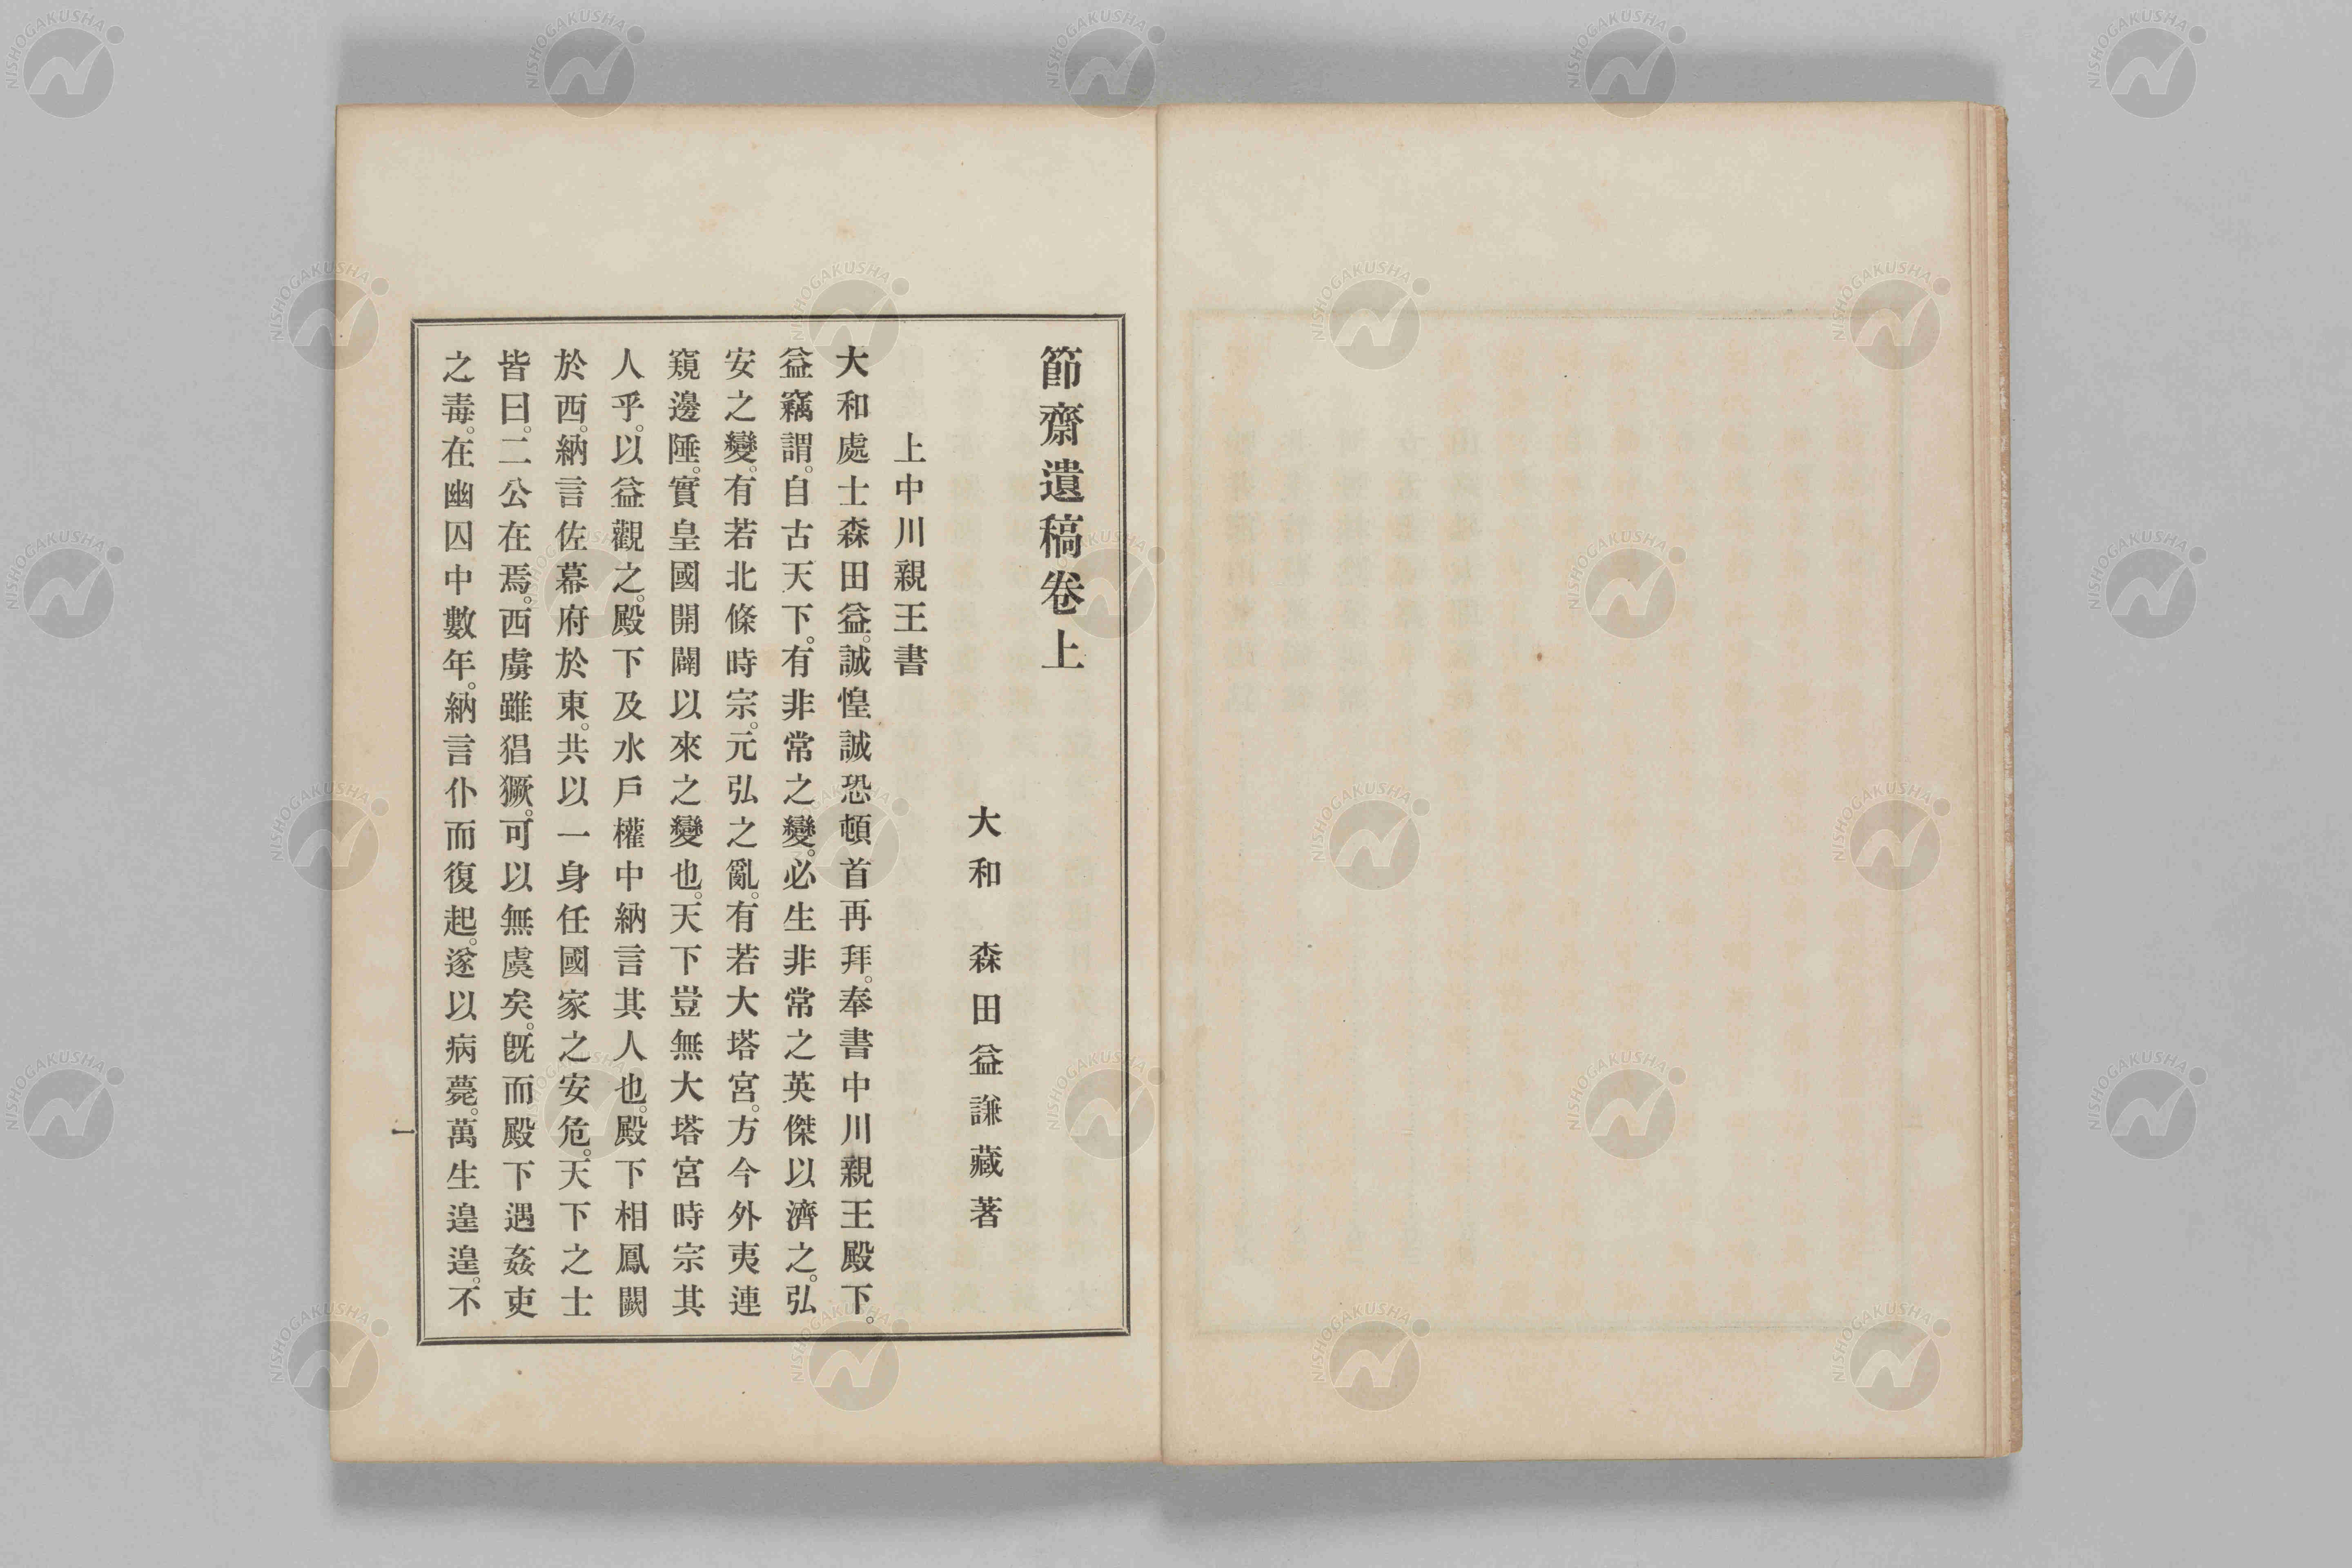 節齋遺稿卷上
大和　森田益謙藏著
上中川親王書
大和處士森田益。誠惶誠恐頓首再拜。奉書中川親王殿下。
益竊謂。自古天下。有非常之變。必生非常之英傑以濟之。弘
安之變。有若北條時宗。元弘之亂。有若大塔宮。方今外夷連
窺邊陲。實皇國開闢以來之變也。天下豈無大塔宮時宗其
人乎。以益觀之。殿下及水戶權中納言其人也。殿下相鳳闕
於西。納言佐幕府於東。共以一身任國家之安危。天下之士
皆曰。二公在焉。西虜雖猖獗。可以無虞矣。既而殿下遇姦吏
之毒。在幽囚中數年。納言仆而復起。遂以病薨。萬生遑遑。不
一
NISHOGAKUSHA